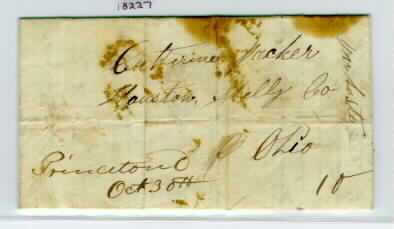 18227
Catherine Wacker
Houston Shelby Co
Ohio
Princeton O
Oct 30th
10